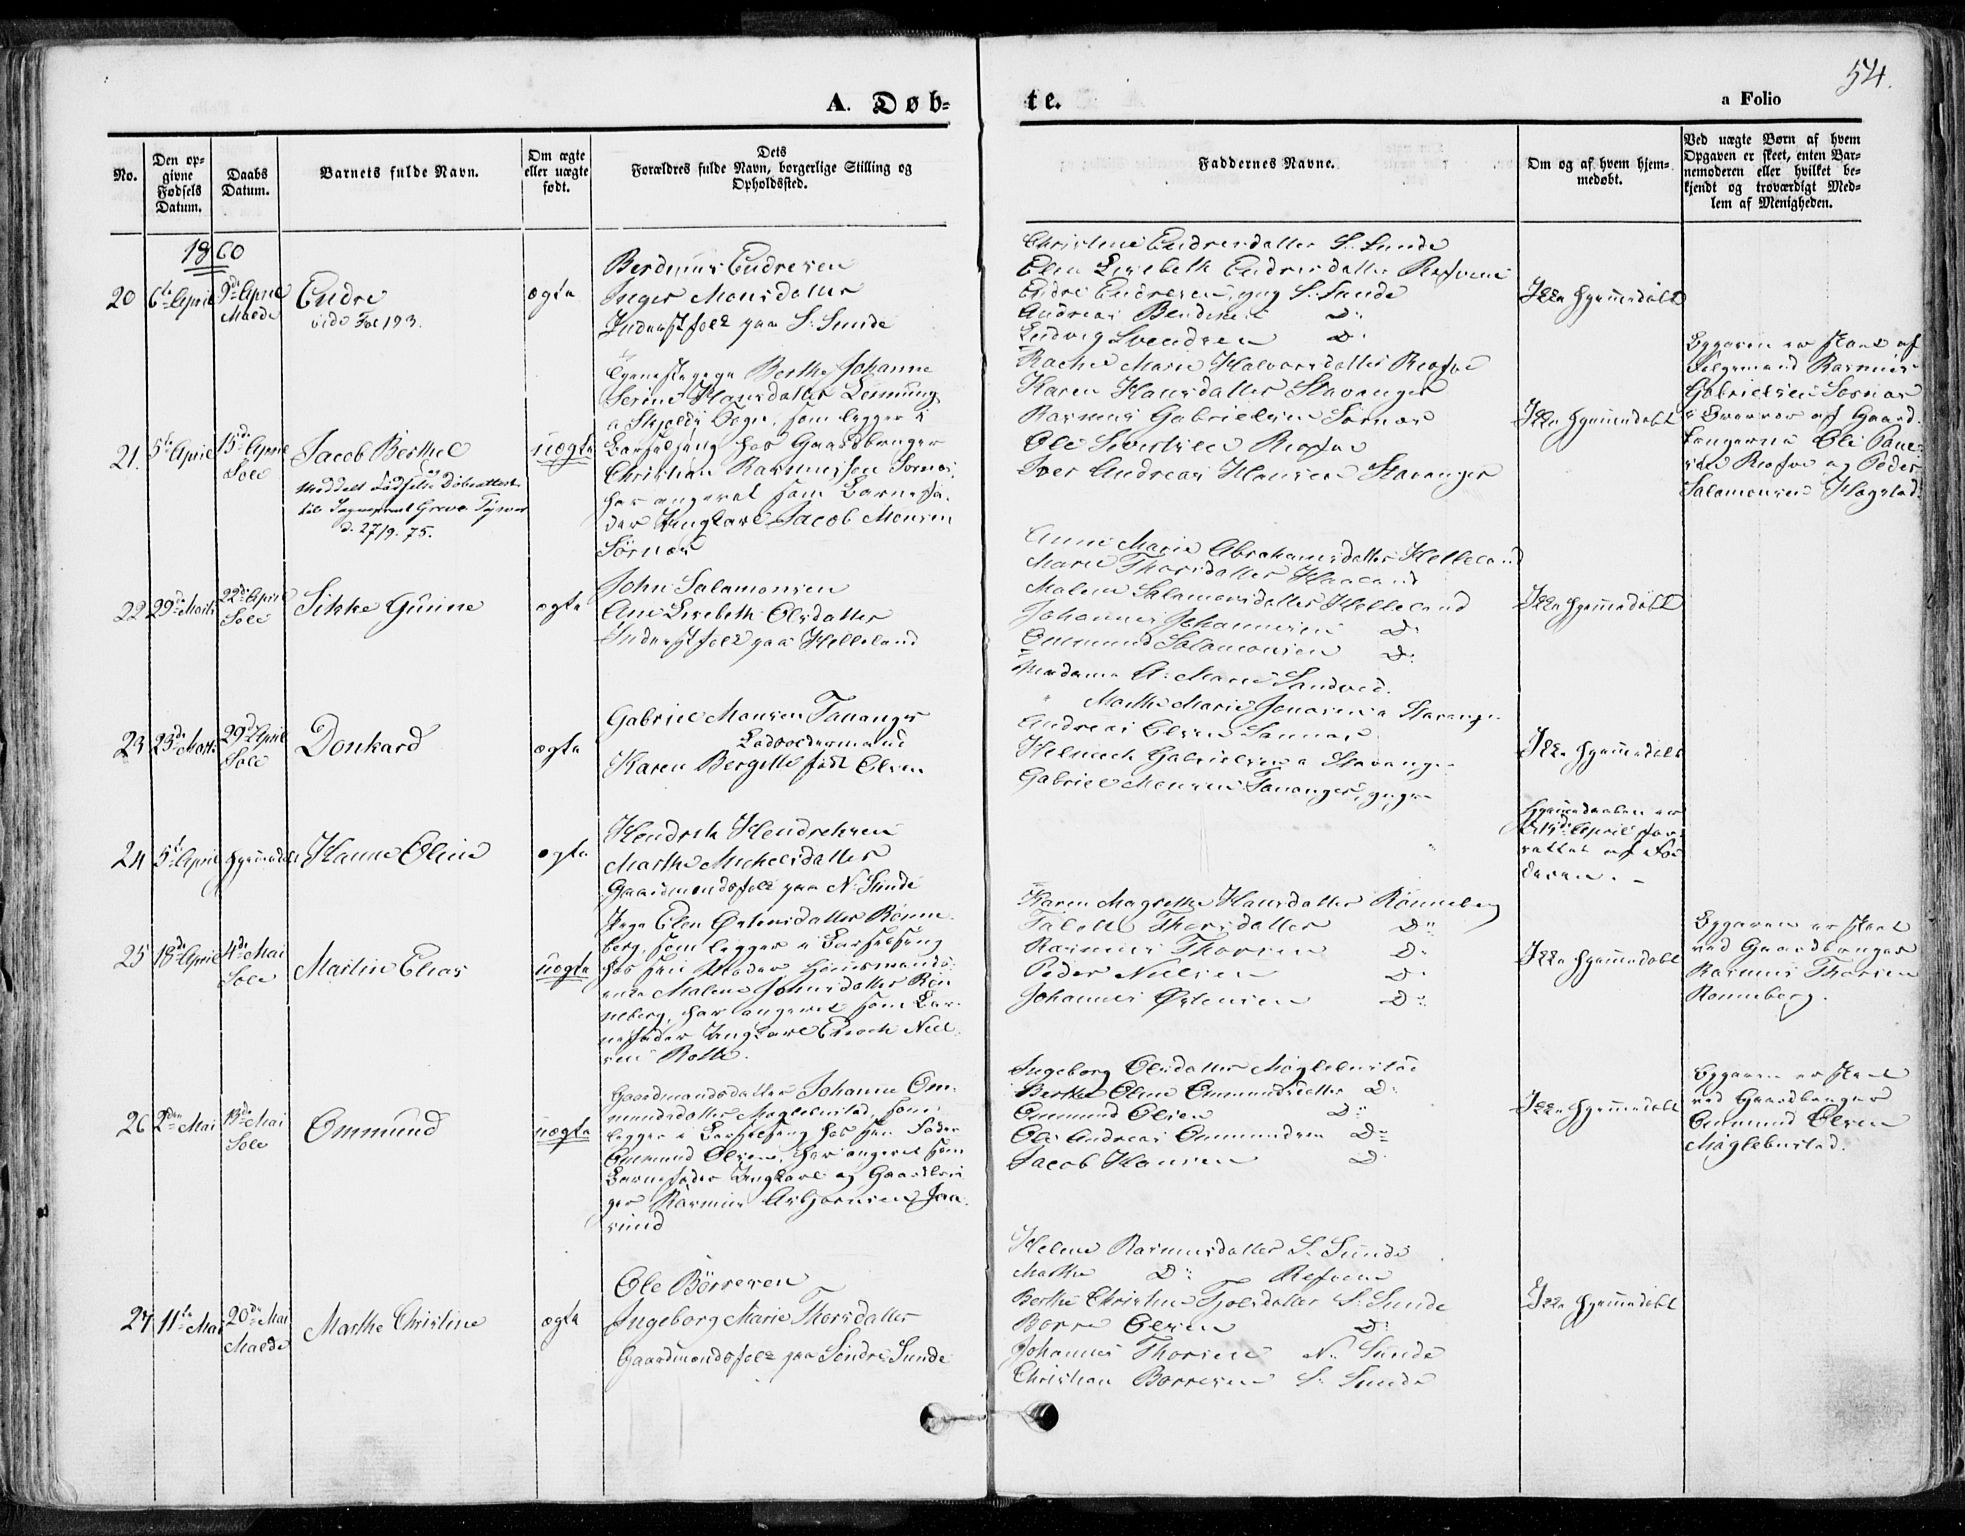 54.
A. Døb=
te.
a Folio
No.
Den op=
givne
Fødsels
Datum.
Daabs
Datum.
Barnets fulde Navn.
Om ægte
eller uægte
født.
Dets
Forældres fulde Navn, borgerlige Stilling og
Opholdssted.
Faddernes Navne.
Om og af hvem hjem=
medøbt.
Ved uægte Børn af hvem
Opgaven er skeet, enten Bar=
nemoderen eller hvilket be=
kjendt og troværdigt Med=
lem af Menigheden.
1860
20
6te April
9de April
Malde
Endre
vide Fol 193.
ægte
Berdinus Endresen
Inger Monsdatter
Inderstfolk paa S. Sunde
Christine Endresdatter S. Sunde
Elen Lisebeth Endresdatter
Endre Endresen, yng S. Sunde
Andreas D:
Ludvig Svendsen D:
Ikke hjemmedøbt
21.
5te April
15de April
Sole
Jacob Berthel
Meddelt Fødsels og Døbeattest
d. 27/9. 75.
uægte
Tjenestepige Berthe Johanne
Serine Hansdatter
i Skjolds Sogn, som ligger i
Barselseng hos Gaardbruger
Christian Rasmussen Sørnæs,
har angivet som Barnefa=
der Ungkarl Jacob Monsen
Sørnæs
Rachel Marie Halvorsdatter
Karen Hansdatter Stavanger
Rasmus Gabrielsen Sørnæs
Ole Sivertsen
Iver Andreas Hansen Stavanger
Ikke hjemmedøbt
Opgaven er skeet af
Rasmus
Gabrielsen Sørnæs
af Gaard=
Ole
og Peder
Salamonsen Hogstad.
22
29de Marts
22de April
Sole
Sikke Gurine
ægte
John Salamonsen
Ane Lisebeth Olsdatter
Inderstfolk paa Helleland
Anne Marie Abrahamsdatter Helleland
Marie Thorsdatter Haaland
Malene Salamonsdatter Helleland
Johannes Johannesen D:
Ommund Salamonsen D:
Ikke hjemmedøbt
23
23de Marts
29de April
Sole
Donkard
ægte
Gabriel Monsen Tananger
Karen Bergitte født Olsen
Madame A. Marie Sandved.
" Marthe Marie Stavanger
Andreas Olsen
Helmich Gabrielsen Stavanger
Gabriel Monsen Tananger, yngre
Ikke hjemmedøbt
24
5te April
hjemmedøbt
Hanne Oline
ægte
Hendrik Hendriksen
Marthe Michelsdatter
Gaardmandsfolk paa N. Sunde
Hjemmedaaben er
d. April for=
rettet af Fa=
deren. –
25
18de April
4de Mai
Sole
Martin Elias
uægte
Pige Elen Østensdatter Rønne=
berg, som ligger i Barselseng
hos sin Moder Huusmands=
enke Malene Johnsdatter Røn=
neberg, har angivet som Bar=
nefader Ungkarl Enoch Niel=
sen Rotte.
Karen Magrethe Hansdatter Rønneberg
Thorsdatter D:
Rasmus Thorsen D:
Peder Nielsen D:
Johannes Østensen D:
Ikke hjemmedøbt
Opgaven er skeet
ved Gaardbruger
Rasmus Thorsen
Rønneberg.
26
2den Mai
13de Mai
Sole
Ommund
uægte
Gaardmandsdatter Johanne Om=
mundsdatter Møglebustad, som
ligger i Barselseng hos sin Fader
Ommund Olsen, har angivet som
Barnefader Ungkarl og Gaardbru=
ger Rasmus Asbjørnsen Jaa=
sund
Ingeborg Olsdatter Møglebustad
Berthe Oline Ommundsdatter D:
Ommund Olsen D:
Ole Andreas Ommundsen D:
Jacob Hansen D:
Ikke hjemmedøbt
Opgaven er skeet
ved Gaardbruger
Ommund Olsen
Møglebustad.
27
11te Mai
20de Mai
Malde
Marthe Christine
ægte
Ole Børresen
Ingeborg Marie Thorsdatter
Gaardmandsfolk paa Søndre Sunde
Helene Rasmusdatter S. Sunde
Marthe D:
Berthe Christine S. Sunde
Børre Olsen D:
Johannes Thorsen N. Sunde
Christian Børresen S. Sunde
Ikke hjemmedøbt